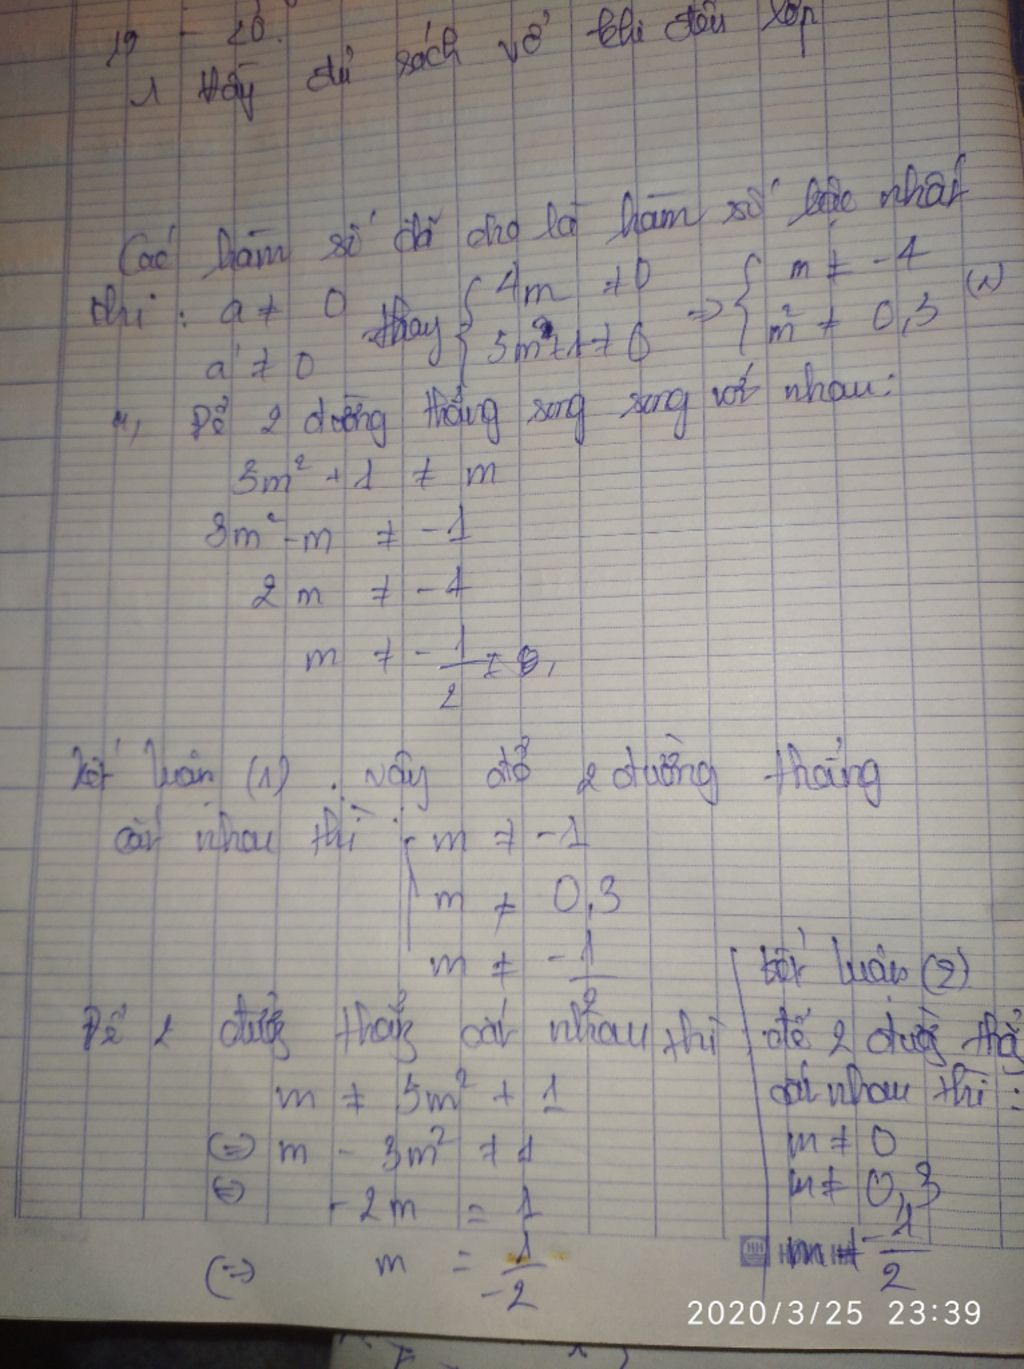 19 - 20.
1 thầy đủ sách vở khi đến lớp
Các hàm số đã cho là hàm số bậc nhất
thì : a ≠ 0 thay { 4m ≠ 0 => { m ≠ -4 (1)
a' ≠ 0 3m²+1 ≠ 0 m² ≠ 0,3
Để 2 đường thẳng song song với nhau:
3m² + 1 ≠ m
3m² - m ≠ -1
2m ≠ -1
m ≠ -1/2
Kết luận (1). Vậy để 2 đường thẳng
cắt nhau thì { m ≠ -1
m ≠ 0,3
m ≠ -1/2
Để 2 đườg thẳg cắt nhau thì
m ≠ 3m² + 1
(=) m - 3m² ≠ 1
(=) -2m = 1
(=) m = 1/-2
kết luận (2)
để 2 đườg thẳ
cắt nhau thì :
m ≠ 0
m ≠ 0,3
-1/2
2020/3/25 23:39